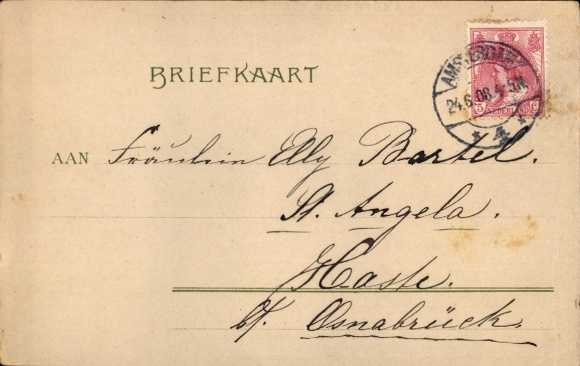 BRIEFKAART
AMSTERDAM
24.6.08.4-5N.
4
5 NEDERLAND C.
AAN Fräulein Elly Bartel.
St. Angela.
Haste.
bt. Osnabrück.